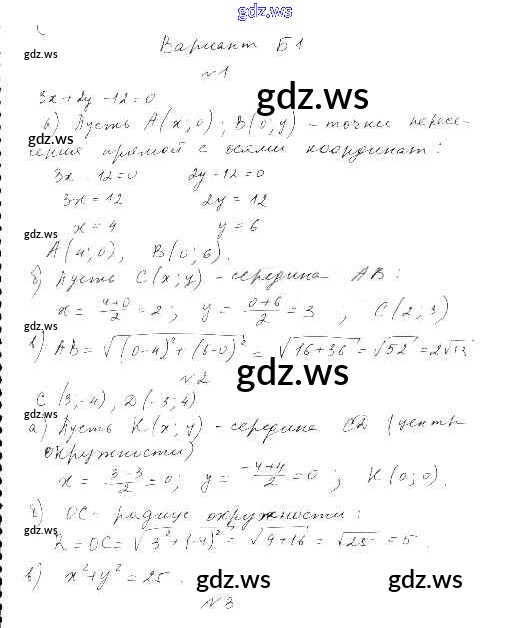 gdz.ws
Вариант Б1
gdz.ws
№1
3x+2y-12=0
gdz.ws
а) Пусть A(x;0), B(0;y) - точки пересе-
чения прямой с осями координат:
gdz.ws
3x-12=0 2y-12=0
3x=12 2y=12
x=4 y=6
gdz.ws
A(4;0), B(0;6).
б) Пусть C(x;y) - середина AB:
x = (4+0)/2 = 2; y = (0+6)/2 = 3; C(2;3)
gdz.ws
в) AB = √((0-4)²+(6-0)²) = √(16+36) = √52 = 2√13
№2
gdz.ws
C(3;-4), D(-3;4)
gdz.ws
а) Пусть K(x;y) - середина CD (центр
окружности)
gdz.ws
x = (3-3)/2 = 0; y = (-4+4)/2 = 0; K(0;0).
б) OC - радиус окружности:
gdz.ws
R = OC = √(3²+(-4)²) = √(9+16) = √25 = 5.
в) x²+y²=25.
gdz.ws gdz.ws
№3